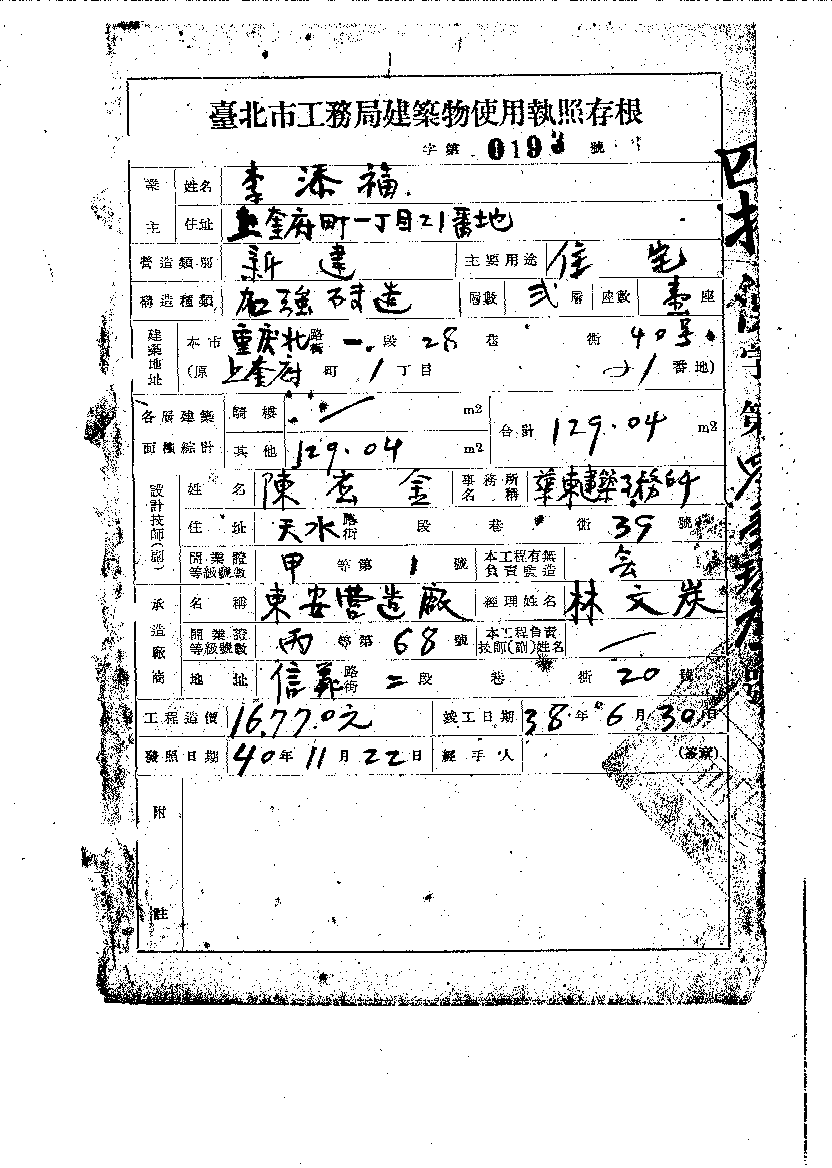 臺北市工務局建築物使用執照存根
字第 0193 號
業主 姓名 李添福
住址 上奎府町一丁目21番地
營造類別 新建 主要用途 住宅
構造種類 加強磚造 層數 弍 層 座數 壹 座
建築地址 本市 重庆北 路街 一 段 28 巷 街 40号
(原 上奎府 町 1 丁目 21 番地)
各層建築面積綜計 騎樓 — m2 合計 129.04 m2
其他 129.04 m2
設計技師(副) 姓名 陳 金 事務所名稱 華東建築事務所
住址 天水 路街 段 巷 街 39 號
開業證等級號數 甲 等第 1 號 本工程有無負責監造
承造廠商 名稱 東安營造廠 經理姓名 林文炭
開業證等級號數 丙 等第 68 號 本工程負責技師(副)姓名 —
地址 信義 路街 二 段 巷 街 20 號
工程造價 16,770元 竣工日期 38年6月30日
發照日期 40年11月22日 經手人 (簽章)
附註